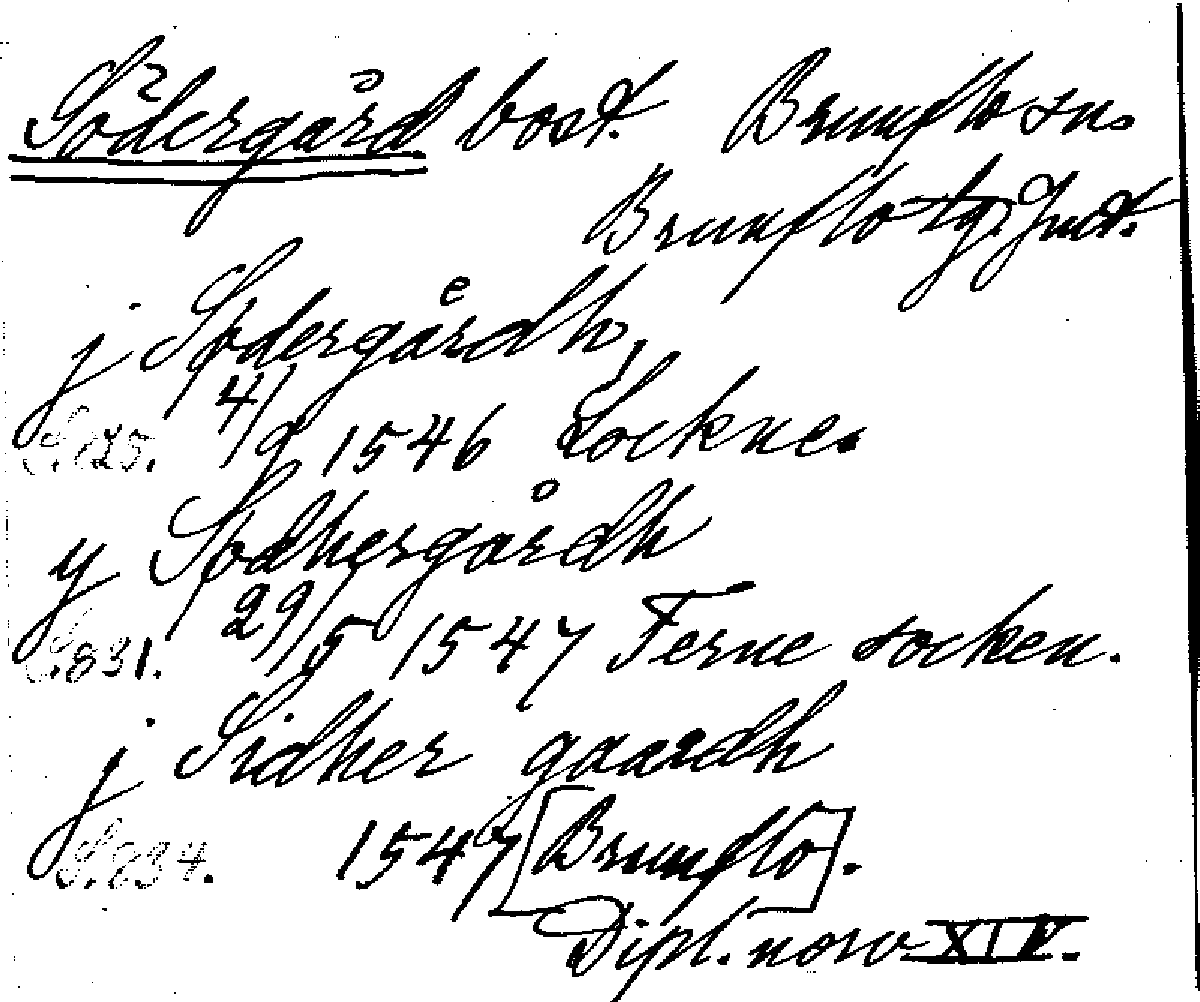 Södergård bost. Brunflo sn.
Brunflo tg. Jmt.
j Sødergårdh,
S. 825. 4/9 1546 Lockne.
y Sødhergårdh
S. 831. 29/5 1547 Ferne socken.
j Sidher gaardh
S. 834. 1547 [Brunflo].
Dipl. norv XIV.